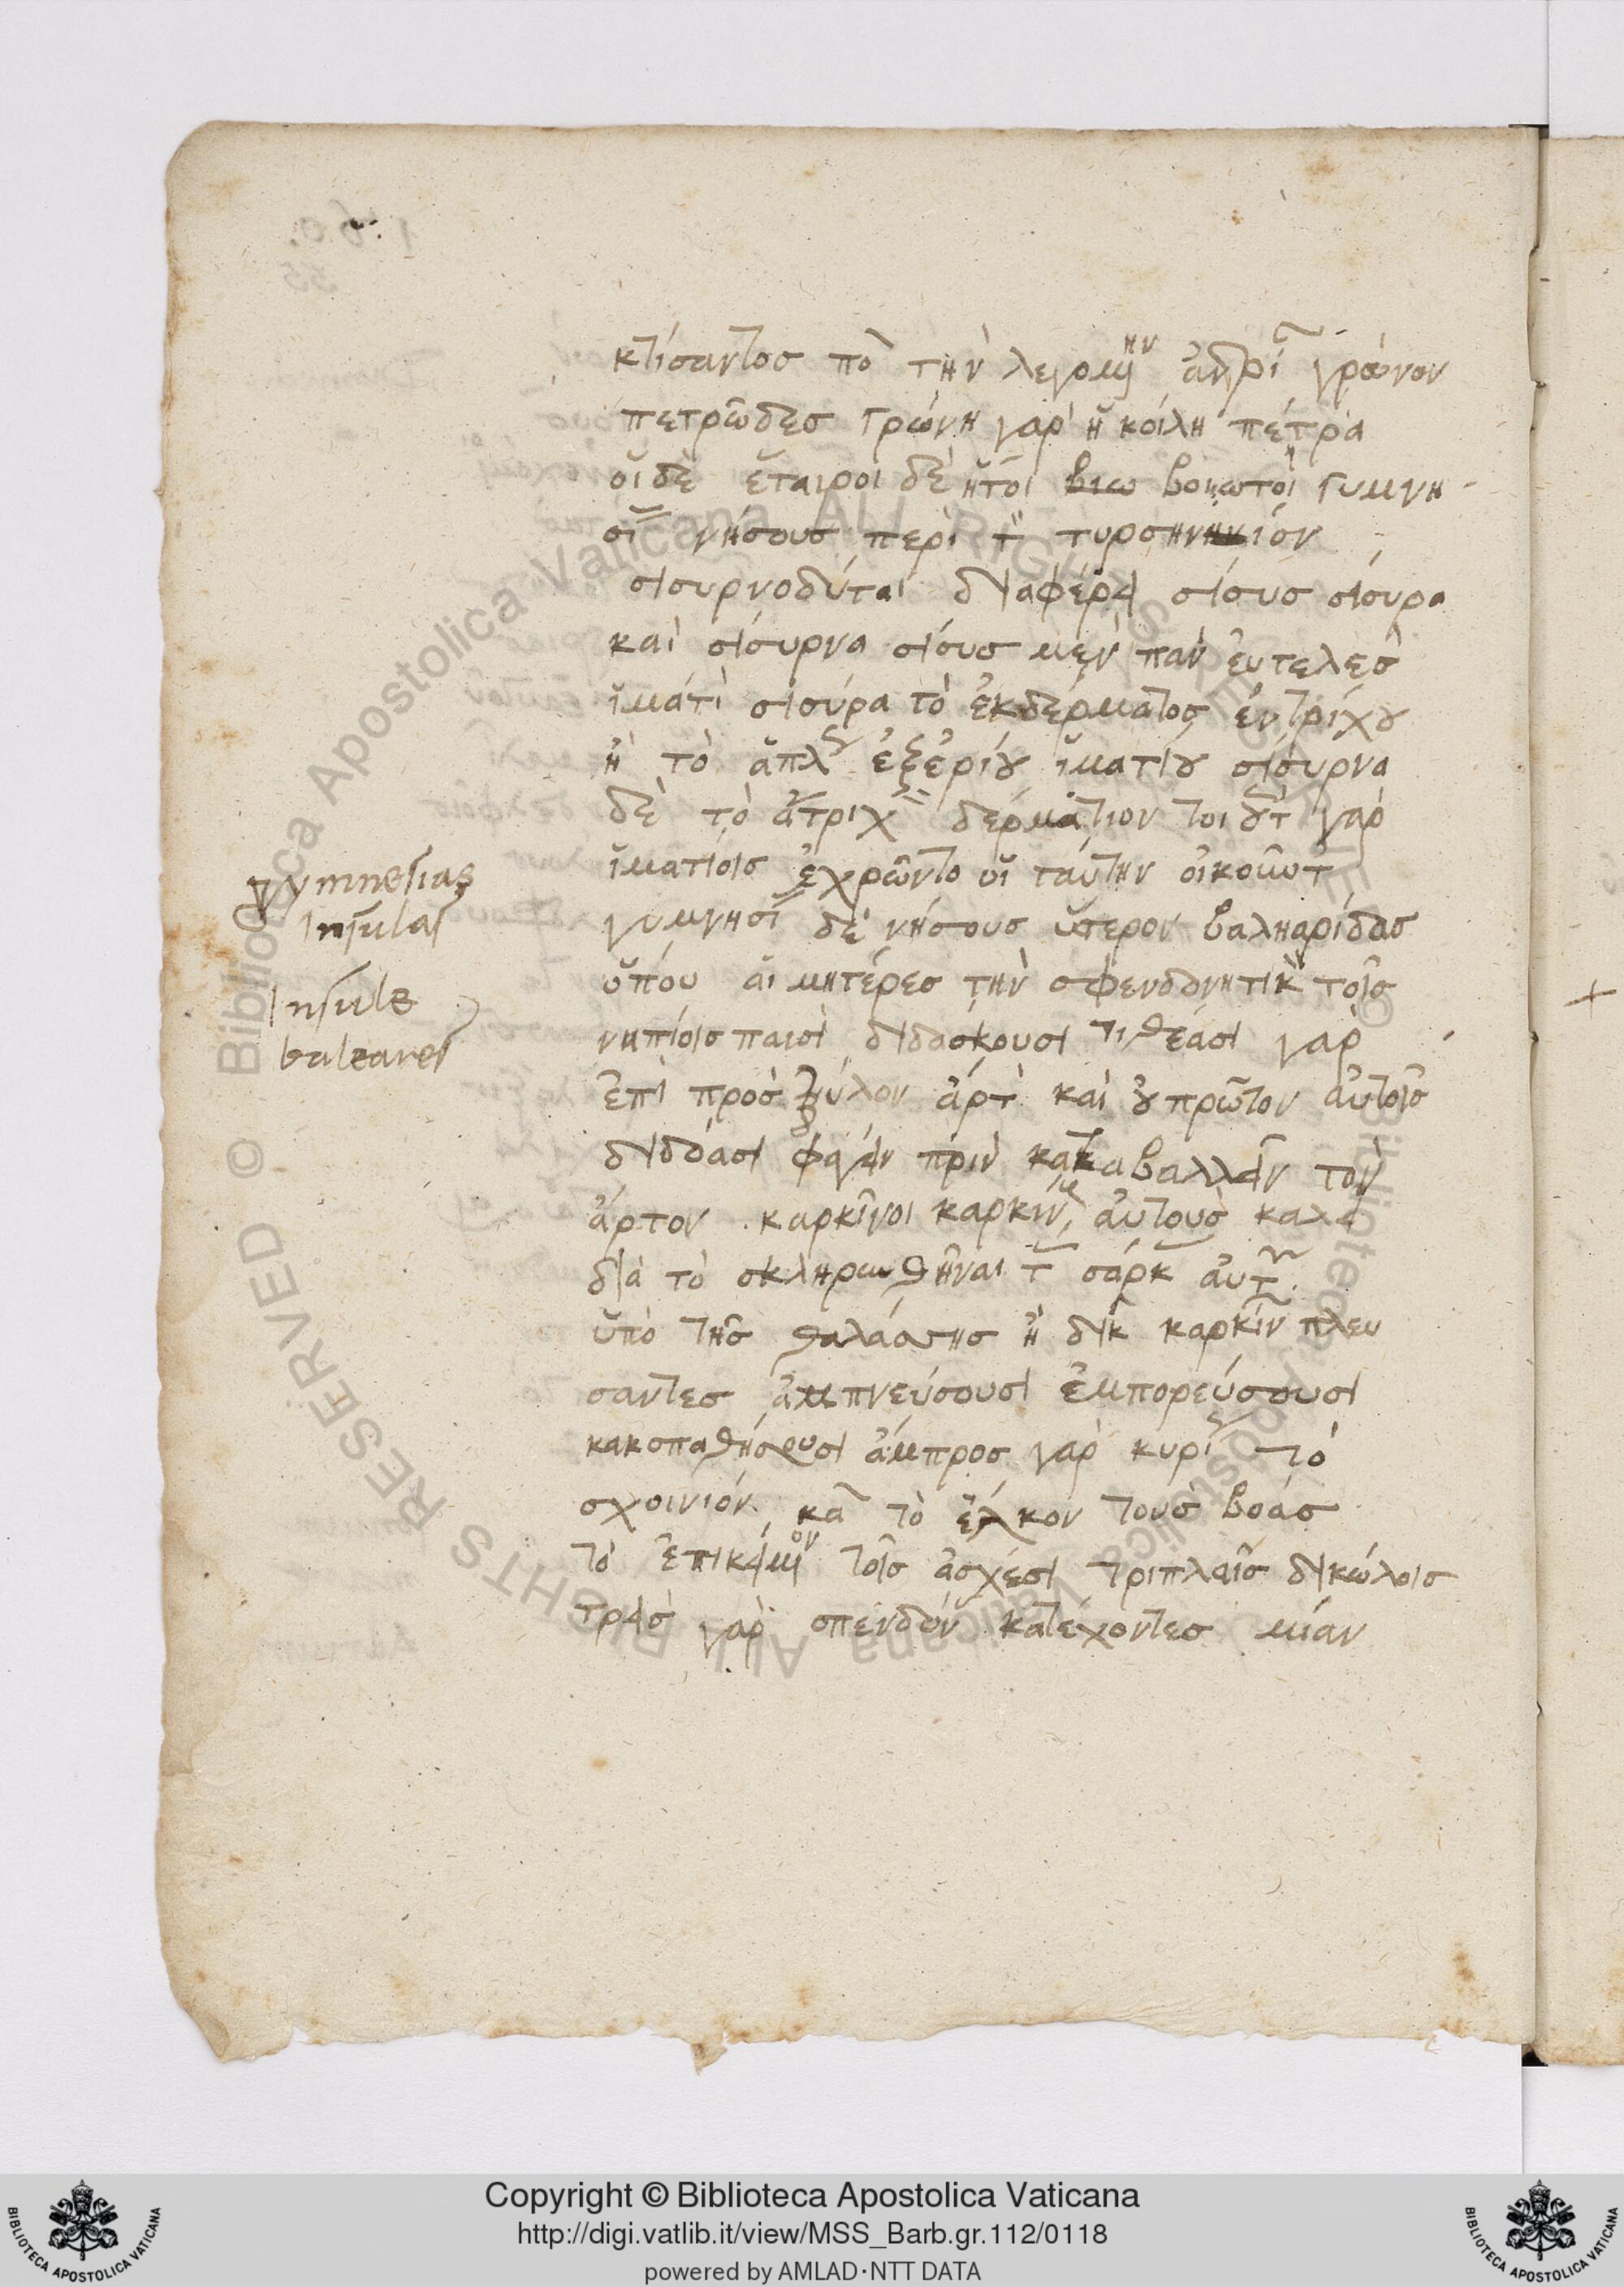 κτίσαντος πό τὴν λεγομην ἀνδρί γρώνον
πετρῶδες Γρώνη γαρ ἡ κοίλη πέτρα
οἱ δὲ ἕταιροι δὲ ἤτοι βιω βοιωτοὶ Γυμνη
σι νήσους περὶ τ τυρσηνικιόν
σισυρνοδύται διαφέρει σίσυς σίσυρα
καὶ σίσυρνα σίσυς μεν παν ἐυτελες
ἱμάτι σισύρα τὸ ἐκδέρματος ἐντρίχου
ἢ τὸ ἁπλ ἐξερίου ἱματίου σίσυρνα
δὲ τὸ ἄτριχ δερμάτιον τοιουτ γαρ
ἱματίοις ἐχρῶντο οἱ ταύτην οἰκοῦντ
γυμνησί δὲ νήσους ὕστερον βαληαρίδας
ὅπου αἱ μητέρες τὴν σφενδονητικ τοῖς
νηπίοις παισὶ διδάσκουσι τιθέασι γαρ
ἐπὶ προς ξύλον ἄρτ καὶ ου πρῶτον αὐτοῖς
διδόασι φαγεῖν πρὶν καταβαλλεῖν τὸν
ἄρτον . καρκῖνοι καρκίν αὐτοὺς καλεῖ
διὰ τὸ σκληρωθῆναι τ σάρκ αὐτῶν
ὑπὸ τῆς θαλάσσης ἢ δικ καρκίν πλευ
σαντες ἀμπνεύσουσι ἐμπορεύσουσι
κακοπαθήσουσι ἄμπρος γαρ κυρί τὸ
σχοινιόν κα τὸ ἕλκον τοὺς βοάς
τὸ ἐπικείμον τοῖς ἀσχέσι τριπλαῖς δικώλοις
τρεῖς γαρ σπενδόν κατέχοντες μίαν
gymnesias
Insulas
Insule
baleares
Copyright © Biblioteca Apostolica Vaticana
http://digi.vatlib.it/view/MSS_Barb.gr.112/0118
powered by AMLAD·NTT DATA